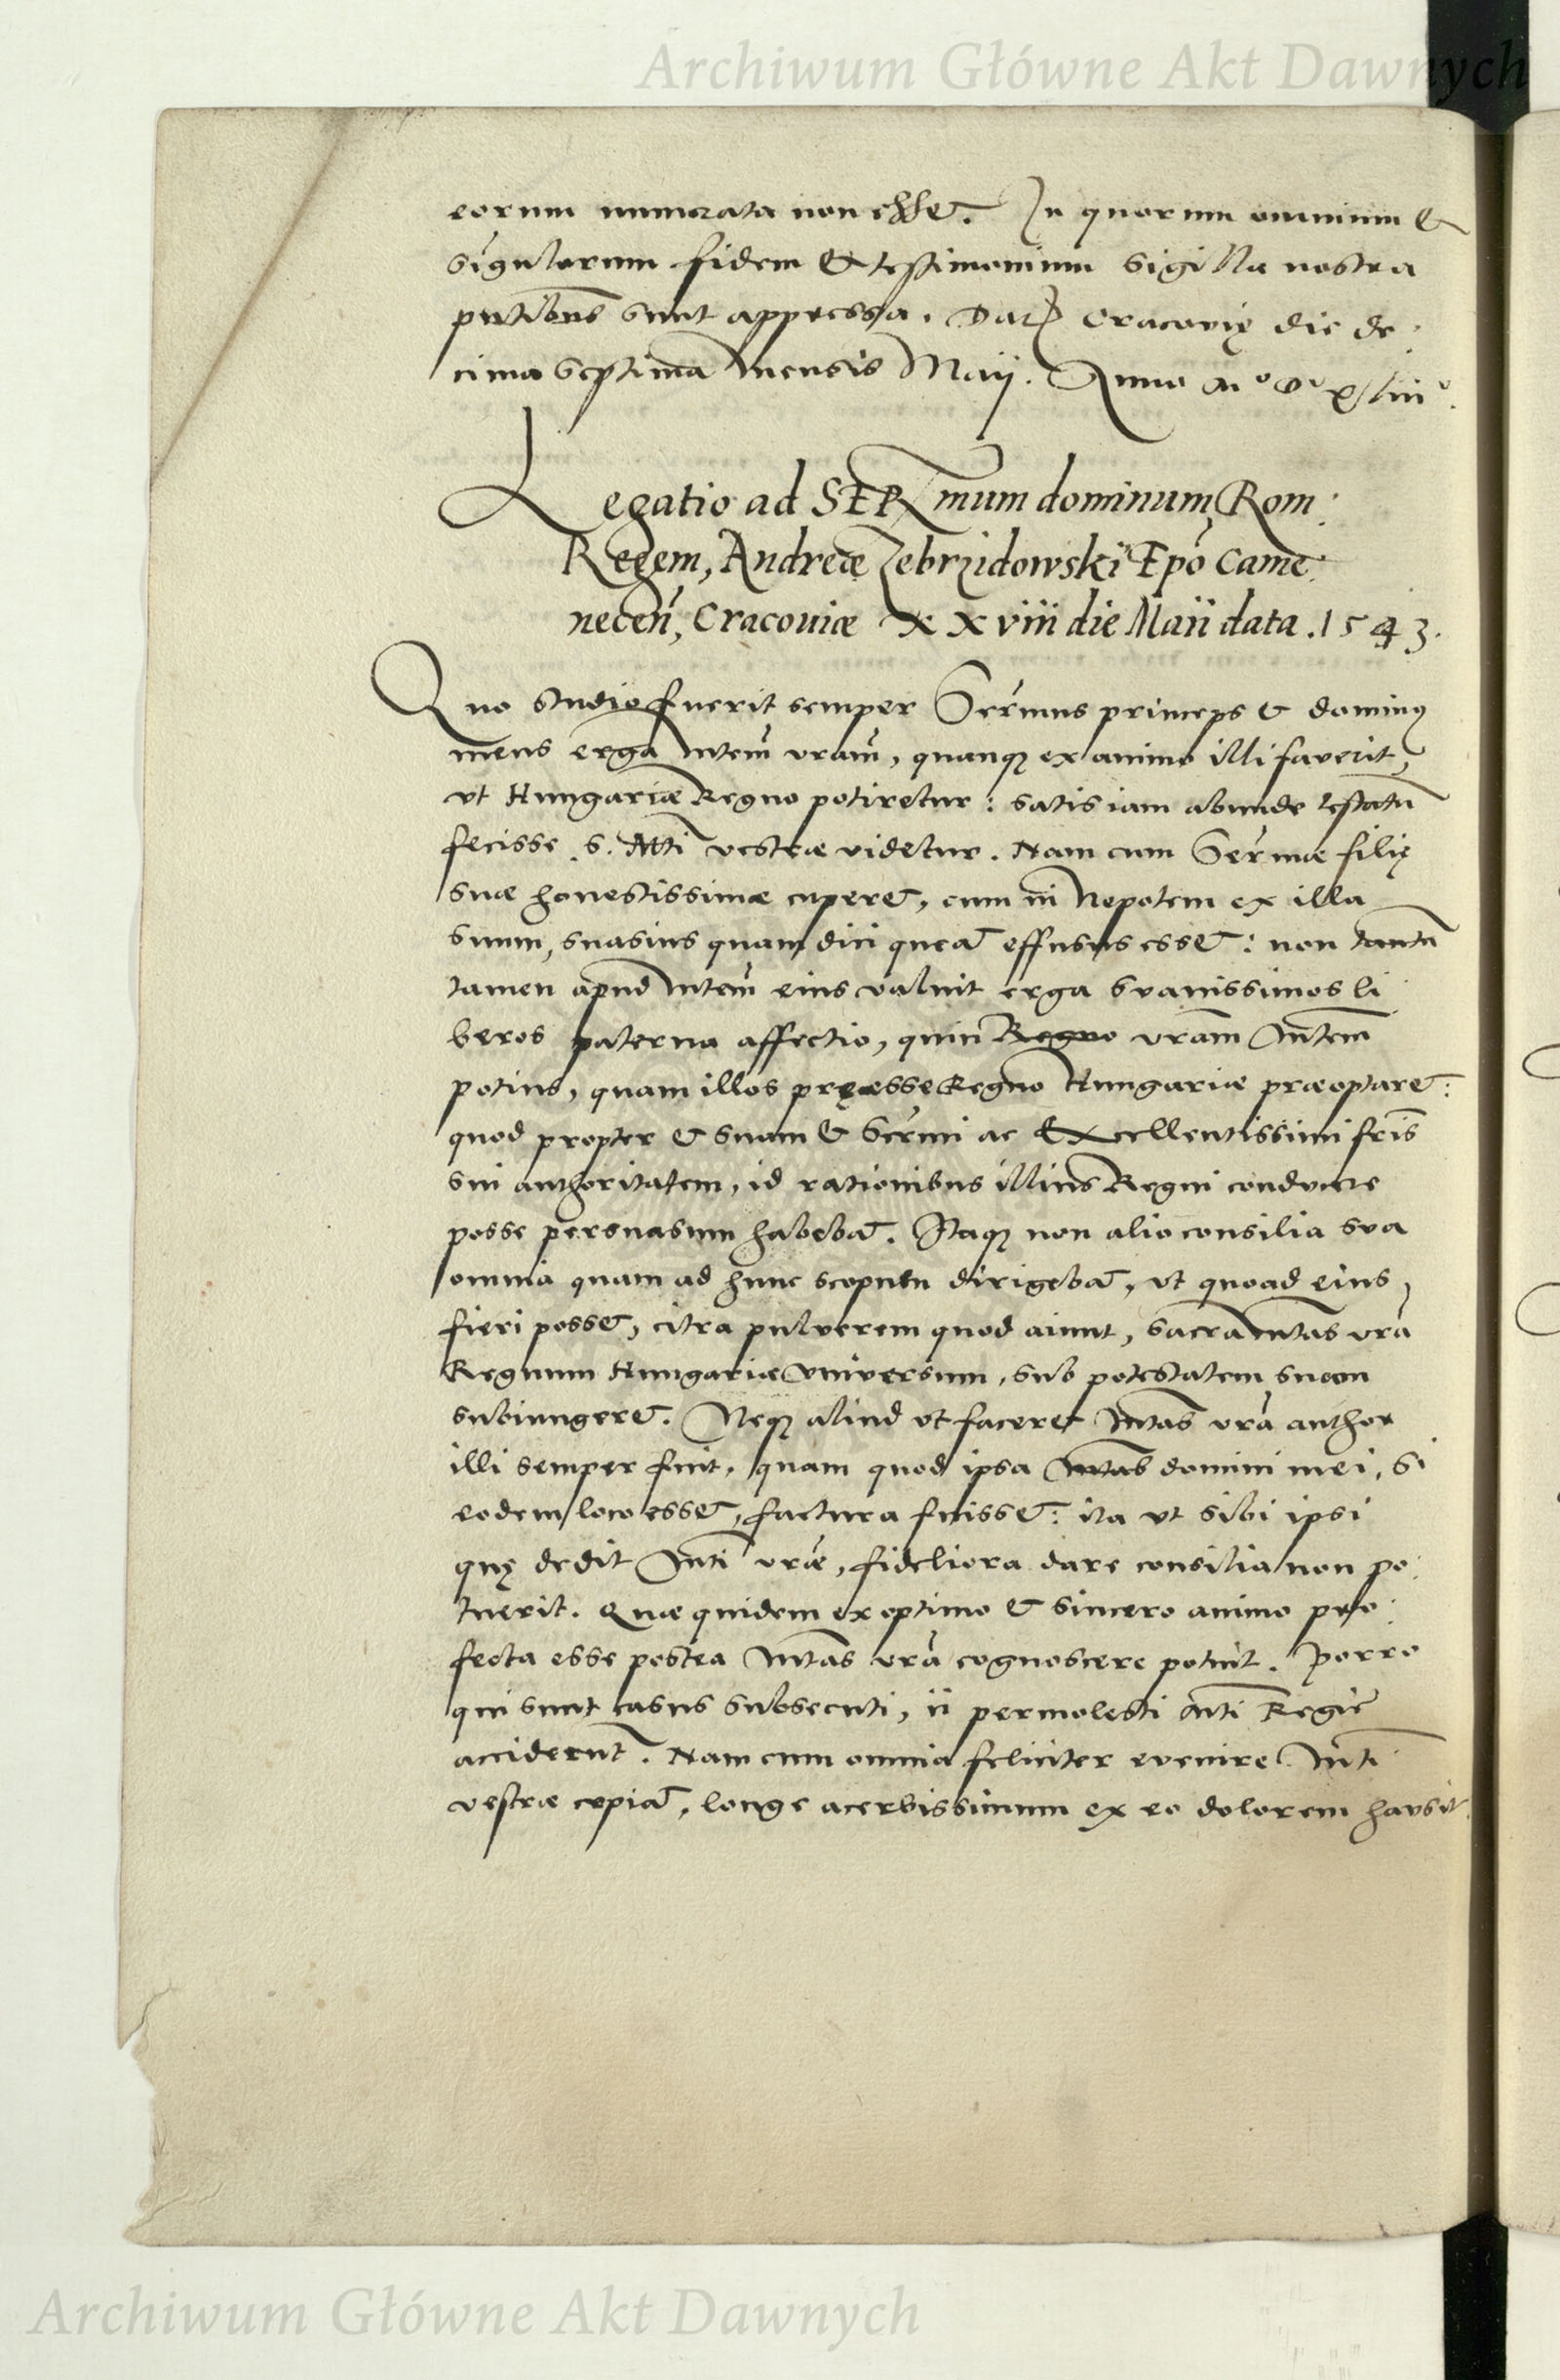 Archiwum Główne Akt Dawnych
eorum numerata non esse. In quorum omnium &
singulorum fidem & testimonium sigilla nostra
pntibus sunt appressa. Dat Cracovię die de:
cima septima mensis Maij. Anno M° D° xliii°.
Legatio ad SERmum dominum Rom:
Regem, Andreæ Zebrzidowski Epo Came:
necen, Cracoviæ xxviii die Maii data. 1543.
Quo studio fuerit semper Sermus princeps & dominus
meus erga Mtem vram, quamque ex animo illi faverit,
vt Hungariæ Regno potiretur: satis iam abunde testatu
fecisse S. Mti vestræ videtur. Nam cum Sermæ filię
suæ honestissimæ cuperet, cum in Nepotem ex illa
suum, suavius quam dici queat effusus esset: non tantu
tamen apud Mtem eius valuit erga suavissimos li
beros paterna affectio, quin Regno vram Mtem
potius, quam illos pręesse Regno Hungariæ præoptaret:
quod propter & suam & Sermi ac Excellentissimi fris
sui authoritatem, id rationibus illius Regni conducere
posse persuasum habebat. Itaque non alio consilia sua
omnia quam ad hunc scopum dirigebat, vt quoad eius
fieri posset, citra pulverem quod aiunt, sacra Mtas vra
Regnum Hungariæ vniversum, sub potestatem suam
subiungeret. Neque aliud vt faceret Mtas vra author
illi semper fuit, quam quod ipsa Mtas domini mei, si
eodem loco esset, factura fuisset: ita vt sibi ipsi
quę dedit Mti vræ, fideliora dare consilia non po:
tuerit. Quæ quidem ex optimo & sincero animo pro:
fecta esse postea Mtas vra cognoscere potuit. Porro
qui sunt casus subsecuti, ii permolesti Mti Regie
acciderunt. Nam cum omnia feliciter evenire Mti
vestræ cupiat, longe acerbissimum ex eo dolorem hausit.
Archiwum Główne Akt Dawnych